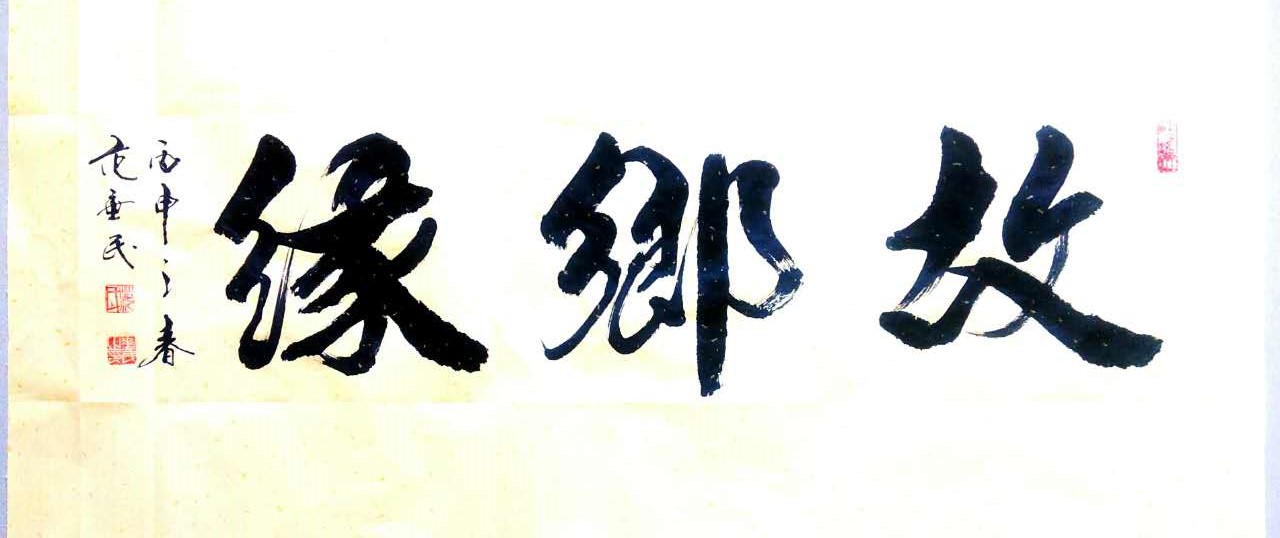 故鄉緣
丙申之春
范垂民